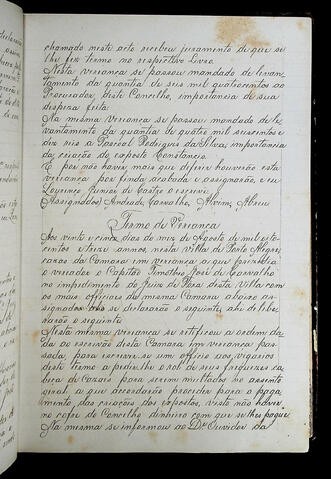 chamado neste acto recebeu juramento de que se
lhe fez termo no respectivo Livro.
Nesta vereança se passou mandado de levan-
tamento da quantia de seis mil quatrocentos ao
Procurador deste Concelho, importancia de sua
despeza feita.
Na mesma Vereança se passou mandado de le-
vantamento da quantia de quatro mil seiscentos e
dez reis a Pascoal Rodrigues da Silva, importancia
da criação do exposto Constancio.
E por não haver mais que deferir houverão esta
vereança por finda acabada e assignarão, e eu
Lourenço Junior de Castro o escrevi.
(Assignados) Andrade, Carvalho, Alvim, Abreu
Termo de Vereança
Aos vinte e cinco dias do mez de Agosto de mil oito-
centos e treze annos, nesta Villa de Porto Alegre,
casas da Camara em vereança a que
o vereador o Capitão Timotheo José de Carvalho
no impedimento do Juiz de Fora desta Villa com
os mais officiaes da mesma Camara abaixo as-
signados se declararão o seguinte, ahi delibe-
rarão o seguinte
Nesta mesma vereança se ratificou a ordem da-
da ao escrivão desta Camara em vereança pas-
sada, para escrever-se um officio aos vigarios
deste Termo a pedir-lhe o rol de seus freguezes ca-
beça de Cazais para serem multados no assento
geral a que accordarão proceder para o paga-
mento das criações dos expostos, visto não haver
no cofre do Concelho dinheiro com que se lhes pague
Na mesma se informou ao Dr. Ouvidor da